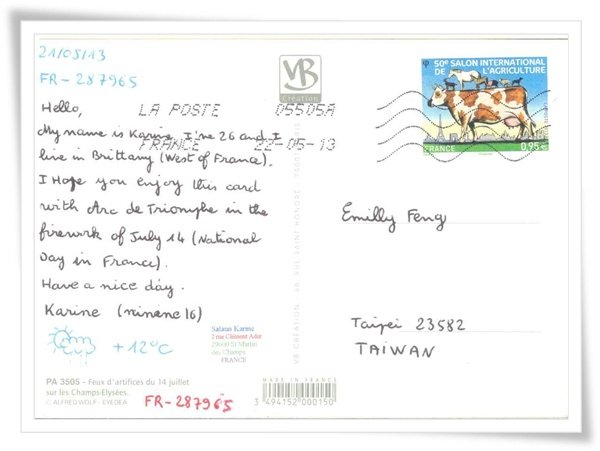 21/05/13
FR-287965
Hello,
My name is Karine. I'me 26 and I
live in Brittany (West of France).
I Hope you enjoy this card
with Arc de Triomphe in the
firework of July 14 (National
Day in France).
Have a nice day.
Karine (ninene16)
+12°C
Salaun Karine
2 rue Clément Ader
29600 St Martin
des Champs
FRANCE
PA 3505 - Feux d'artifices du 14 juillet
sur les Champs-Elysées.
© ALFRED WOLF - EYEDEA
FR-287965
VB
Création
LA POSTE 05505A
FRANCE 22-05-13
VB CREATION
RUE SAINT HONORE
MADE IN FRANCE
3 494152 000150
50e SALON INTERNATIONAL
DE L'AGRICULTURE
FRANCE 0,95€
Emilly Feng
Taipei 23582
TAIWAN